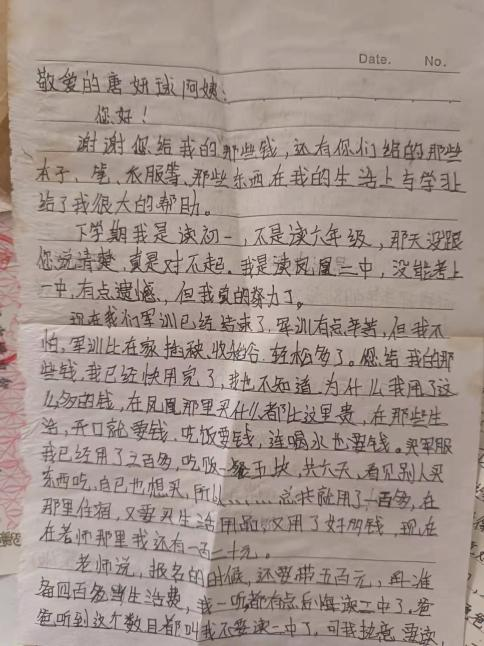 Date. No.
敬爱的唐妍球阿姨:
您好!
谢谢您给我的那些钱,还有你们给的那些
本子、笔、衣服等,那些东西在我的生活上与学习上
给了我很大的帮助。
下学期我是读初一,不是读六年级,那天没跟
您说清楚,真是对不起。我是读凤凰二中,没能考上
一中,有点遗憾,但我真的努力了。
现在我们军训已经结束了,军训有点辛苦,但我不
怕,军训比在家插秧、收稻谷,轻松多了。您给我的那
些钱,我已经快用完了,我也不知道为什么我用了这
么多的钱,在凤凰那里买什么都比这里贵,在那些生
活,开口就要钱,吃饭要钱,连喝水也要钱。买军服
我已经用了三百多,吃饭一餐五块,共六天,看见别人买
东西吃,自己也想买,所以......总共就用了一百多,在
那里住宿,又要买生活用品,又用了好多钱,现在
在老师那里我还有一百二十元。
老师说,报名的时候,还要带五百元,再准
备四百多当生活费,我一听都有点后悔读二中了。爸
爸听到这个数目都叫我不要读二中了,可我执意要读,